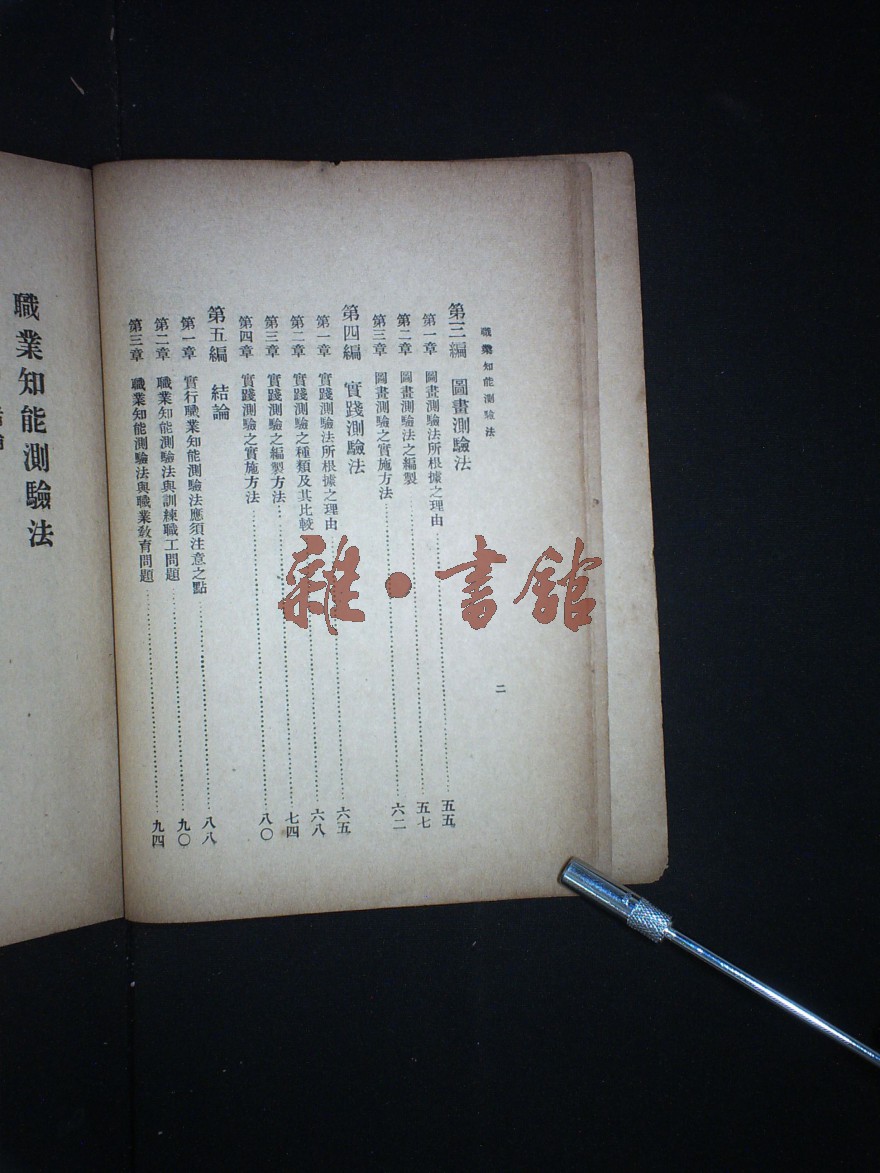 職業知能測驗法
二
第三編 圖畫測驗法
第一章 圖畫測驗法所根據之理由 五五
第二章 圖畫測驗法之編製 五七
第三章 圖畫測驗之實施方法 六二
第四編 實踐測驗法
第一章 實踐測驗法所根據之理由 六五
第二章 實踐測驗之種類及其比較 六八
第三章 實踐測驗之編製方法 七四
第四章 實踐測驗之實施方法 八〇
第五編 結論
第一章 實行職業知能測驗法應須注意之點 八八
第二章 職業知能測驗法與訓練職工問題 九〇
第三章 職業知能測驗法與職業教育問題 九四
職業知能測驗法
雜·書館